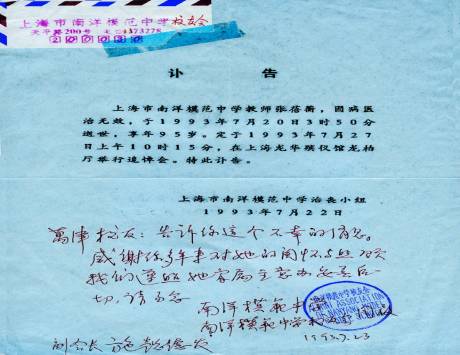 上海市南洋模范中学校友会
天平路200号 4373778
200030
讣告
上海市南洋模范中学教师张蓓蘅,因病医
治无效,于1993年7月20日3时50分
逝世,享年95岁。定于1993年7月27
日上午10时15分,在上海龙华殡仪馆龙柏
厅举行追悼会。特此讣告。
上海市南洋模范中学治丧小组
1993年7月22日
校友:告诉你这个不幸的消息。
感谢你多年来对她的关怀
我们遵照她家属主意办妥善后
切,请勿念
南洋模范中学
南洋模範中学校友会
副会长
1993.7.23